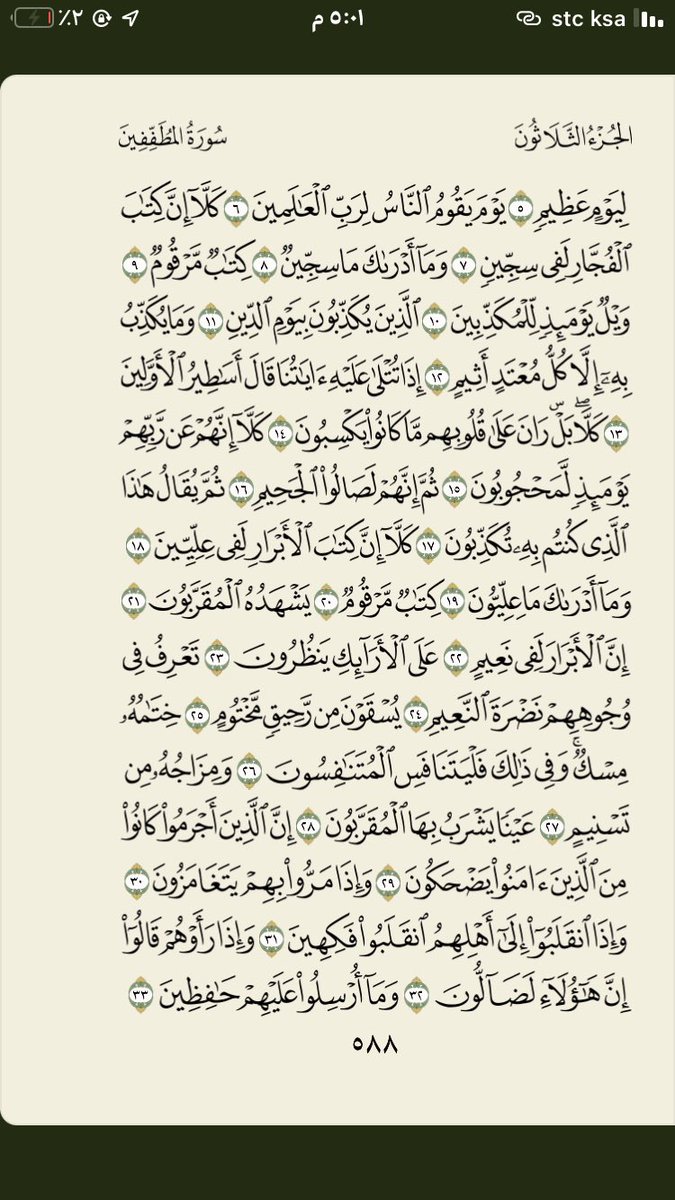 ٪٢ ٥:٠١ م stc ksa
الجُزْءُ الثَّلَاثُونَ سُورَةُ المُطَفِّفِينَ
لِيَوْمٍ عَظِيمٍ ٥ يَوْمَ يَقُومُ ٱلنَّاسُ لِرَبِّ ٱلْعَٰلَمِينَ ٦ كَلَّآ إِنَّ كِتَٰبَ
ٱلْفُجَّارِ لَفِى سِجِّينٍ ٧ وَمَآ أَدْرَىٰكَ مَا سِجِّينٌ ٨ كِتَٰبٌ مَّرْقُومٌ ٩
وَيْلٌ يَوْمَئِذٍ لِّلْمُكَذِّبِينَ ١٠ ٱلَّذِينَ يُكَذِّبُونَ بِيَوْمِ ٱلدِّينِ ١١ وَمَا يُكَذِّبُ
بِهِۦٓ إِلَّا كُلُّ مُعْتَدٍ أَثِيمٍ ١٢ إِذَا تُتْلَىٰ عَلَيْهِ ءَايَٰتُنَا قَالَ أَسَٰطِيرُ ٱلْأَوَّلِينَ
١٣ كَلَّا ۖ بَلْ ۜ رَانَ عَلَىٰ قُلُوبِهِم مَّا كَانُوا۟ يَكْسِبُونَ ١٤ كَلَّآ إِنَّهُمْ عَن رَّبِّهِمْ
يَوْمَئِذٍ لَّمَحْجُوبُونَ ١٥ ثُمَّ إِنَّهُمْ لَصَالُوا۟ ٱلْجَحِيمِ ١٦ ثُمَّ يُقَالُ هَٰذَا
ٱلَّذِى كُنتُم بِهِۦ تُكَذِّبُونَ ١٧ كَلَّآ إِنَّ كِتَٰبَ ٱلْأَبْرَارِ لَفِى عِلِّيِّينَ ١٨
وَمَآ أَدْرَىٰكَ مَا عِلِّيُّونَ ١٩ كِتَٰبٌ مَّرْقُومٌ ٢٠ يَشْهَدُهُ ٱلْمُقَرَّبُونَ ٢١
إِنَّ ٱلْأَبْرَارَ لَفِى نَعِيمٍ ٢٢ عَلَى ٱلْأَرَآئِكِ يَنظُرُونَ ٢٣ تَعْرِفُ فِى
وُجُوهِهِمْ نَضْرَةَ ٱلنَّعِيمِ ٢٤ يُسْقَوْنَ مِن رَّحِيقٍ مَّخْتُومٍ ٢٥ خِتَٰمُهُۥ
مِسْكٌ ۚ وَفِى ذَٰلِكَ فَلْيَتَنَافَسِ ٱلْمُتَنَٰفِسُونَ ٢٦ وَمِزَاجُهُۥ مِن
تَسْنِيمٍ ٢٧ عَيْنًا يَشْرَبُ بِهَا ٱلْمُقَرَّبُونَ ٢٨ إِنَّ ٱلَّذِينَ أَجْرَمُوا۟ كَانُوا۟
مِنَ ٱلَّذِينَ ءَامَنُوا۟ يَضْحَكُونَ ٢٩ وَإِذَا مَرُّوا۟ بِهِمْ يَتَغَامَزُونَ ٣٠
وَإِذَا ٱنقَلَبُوٓا۟ إِلَىٰٓ أَهْلِهِمُ ٱنقَلَبُوا۟ فَكِهِينَ ٣١ وَإِذَا رَأَوْهُمْ قَالُوٓا۟
إِنَّ هَٰٓؤُلَآءِ لَضَآلُّونَ ٣٢ وَمَآ أُرْسِلُوا۟ عَلَيْهِمْ حَٰفِظِينَ ٣٣
٥٨٨